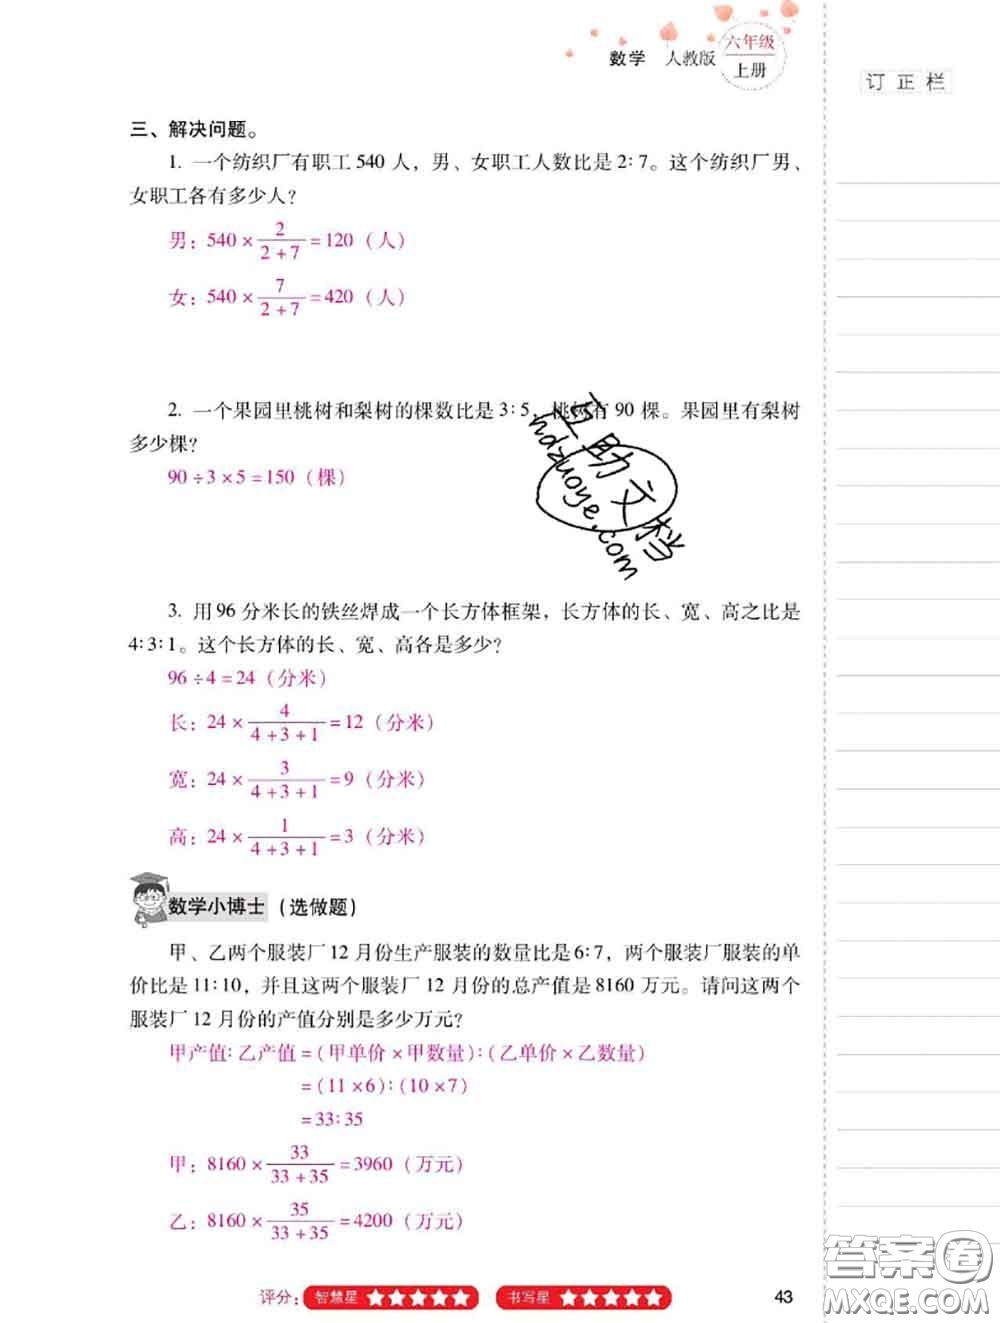 数学 人教版 六年级
上册
订正栏
三、解决问题。
1. 一个纺织厂有职工 540 人，男、女职工人数比是 2∶7。这个纺织厂男、
女职工各有多少人？
男：540 × 2/(2+7) = 120（人）
女：540 × 7/(2+7) = 420（人）
2. 一个果园里桃树和梨树的棵数比是 3∶5，桃树有 90 棵。果园里有梨树
多少棵？
90 ÷ 3 × 5 = 150（棵）
互助文档
hdzuoye.com
3. 用 96 分米长的铁丝焊成一个长方体框架，长方体的长、宽、高之比是
4∶3∶1。这个长方体的长、宽、高各是多少？
96 ÷ 4 = 24（分米）
长：24 × 4/(4+3+1) = 12（分米）
宽：24 × 3/(4+3+1) = 9（分米）
高：24 × 1/(4+3+1) = 3（分米）
数学小博士（选做题）
甲、乙两个服装厂 12 月份生产服装的数量比是 6∶7，两个服装厂服装的单
价比是 11∶10，并且这两个服装厂 12 月份的总产值是 8160 万元。请问这两个
服装厂 12 月份的产值分别是多少万元？
甲产值∶乙产值 =（甲单价 × 甲数量）∶（乙单价 × 乙数量）
=（11 × 6）∶（10 × 7）
= 33∶35
甲：8160 × 33/(33+35) = 3960（万元）
乙：8160 × 35/(33+35) = 4200（万元）
评分： 智慧星 ★★★★★ 书写星 ★★★★★ 43
答案圈
MXQE.COM